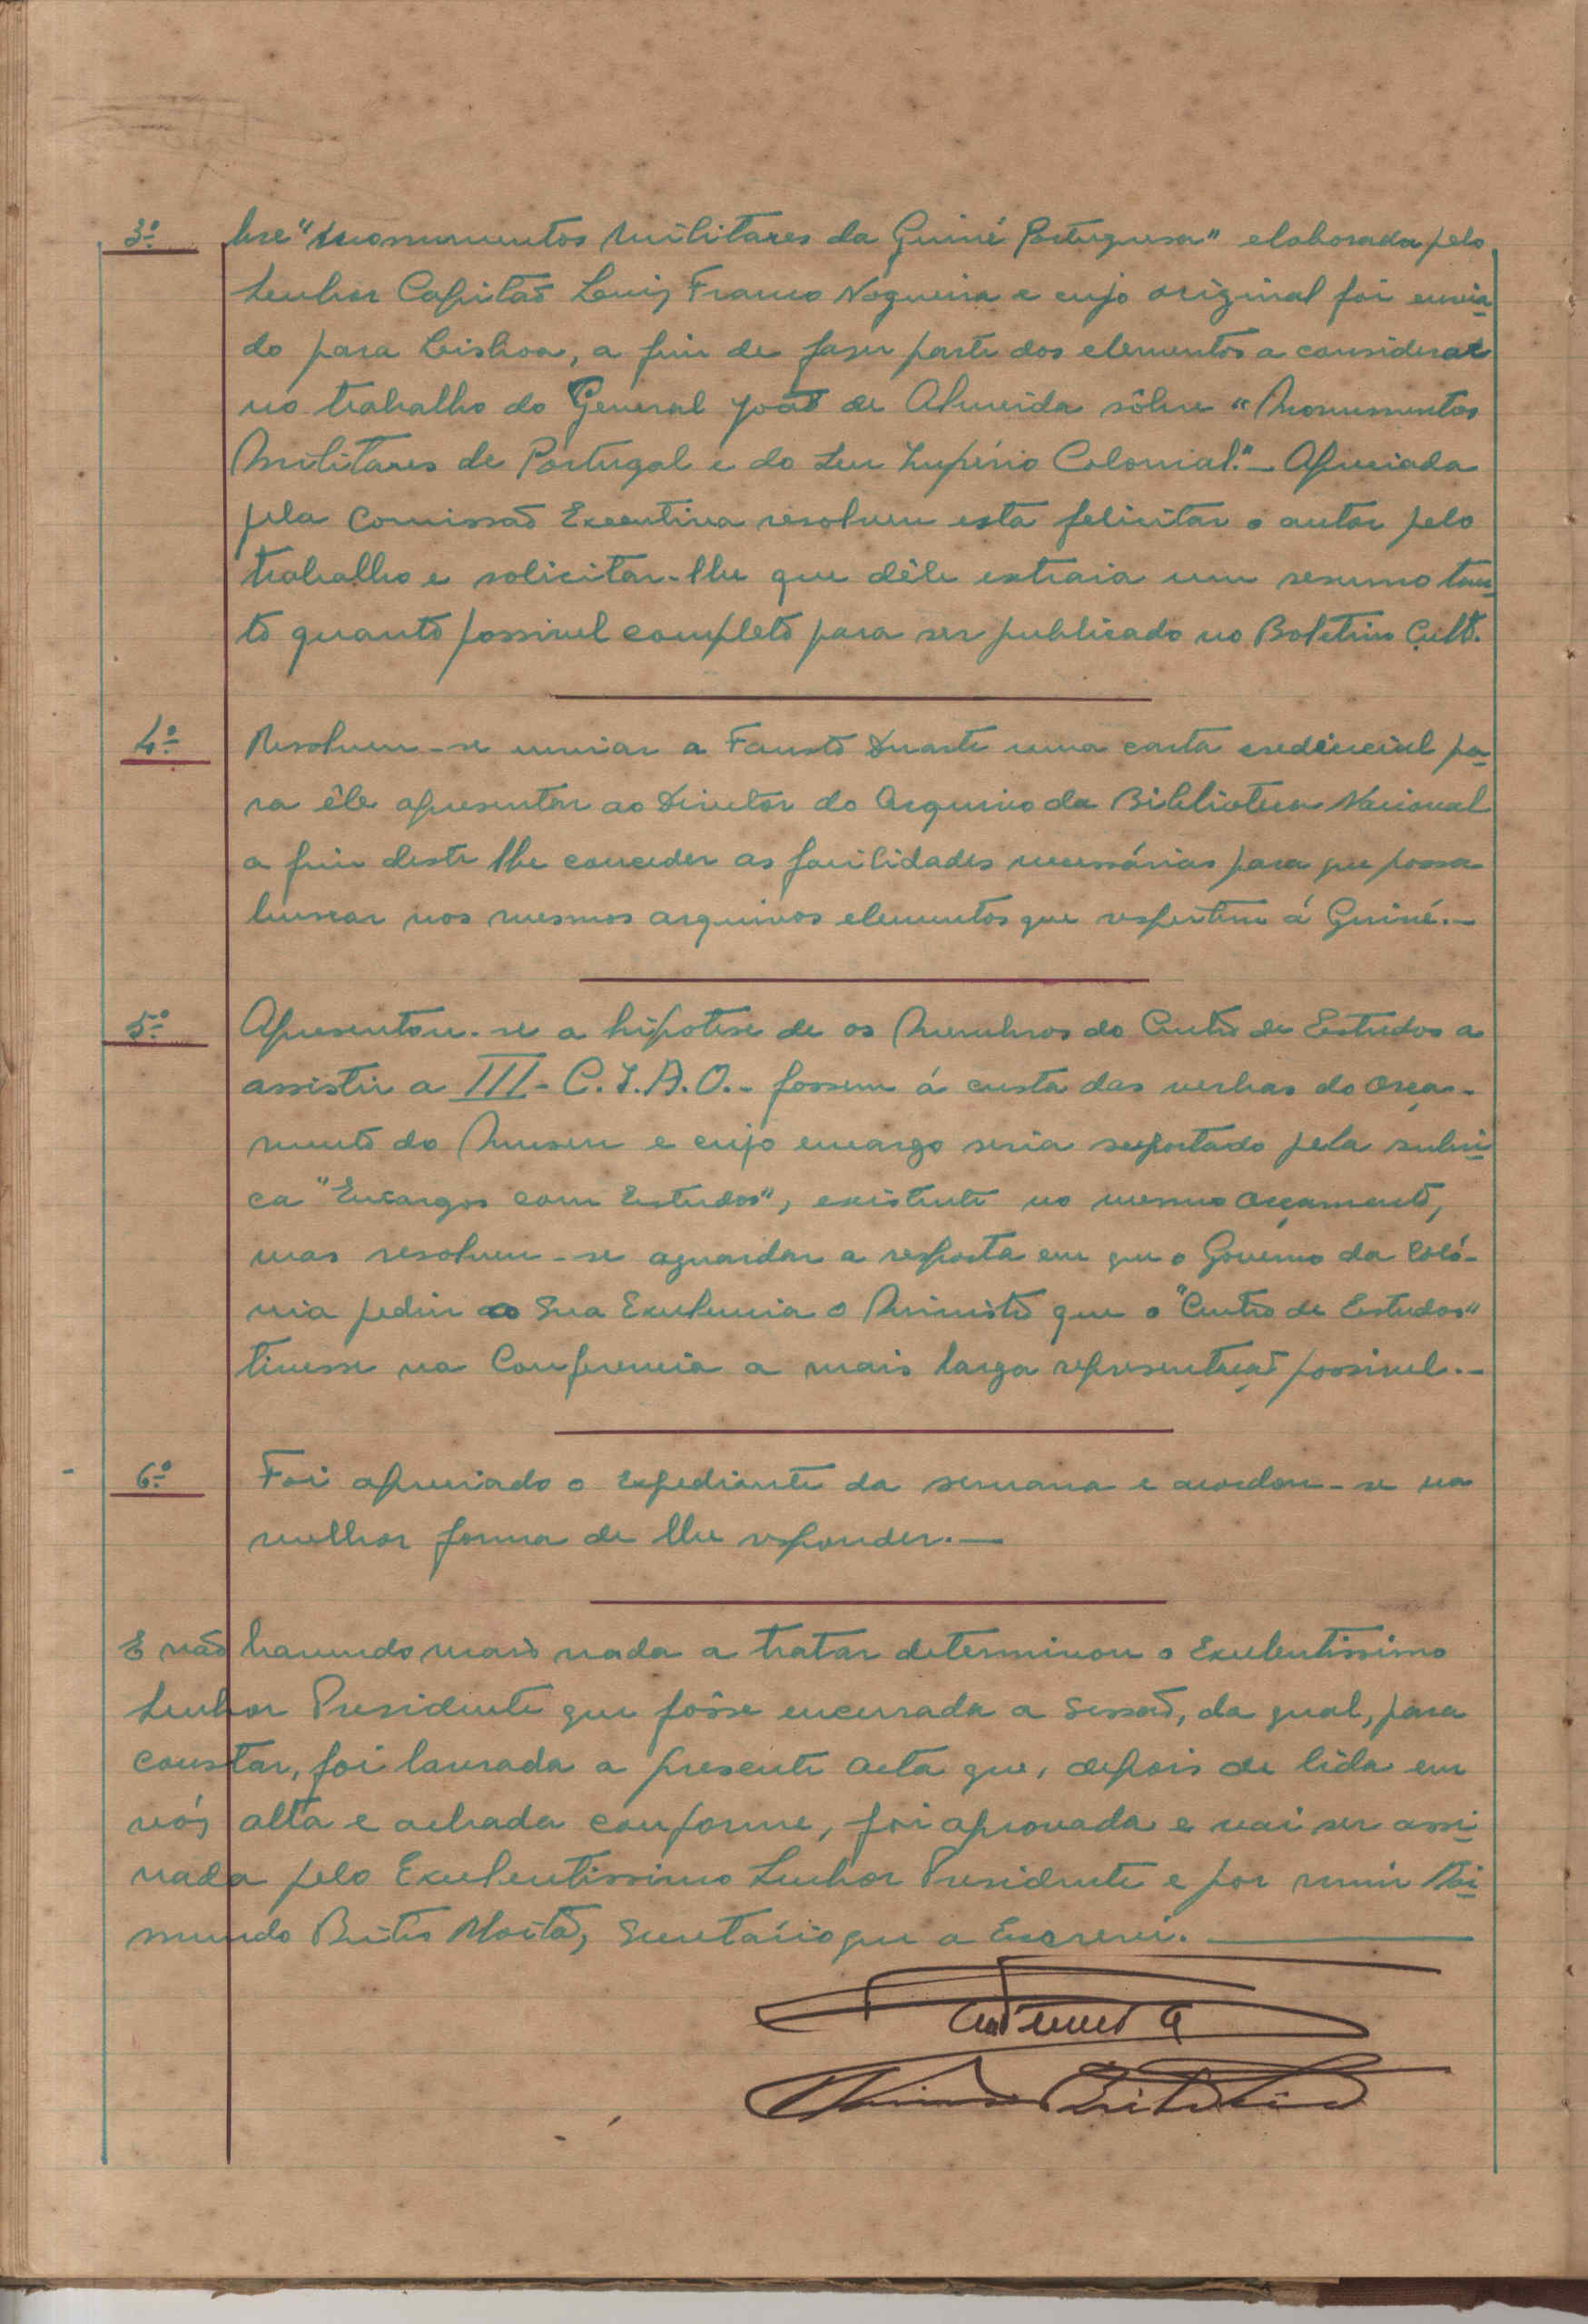 3.º bre "Monumentos Militares da Guiné Portuguesa" elaborada pelo
Senhor Capitão Luiz Franco Nogueira e cujo original foi envia
do para Lisboa, a fim de fazer parte dos elementos a considerar
no trabalho do General João de Almeida sôbre "Monumentos
Militares de Portugal e do Seu Império Colonial."- Apreciada
pela Comissão Executiva resolveu esta felicitar o autor pelo
trabalho e solicitar-lhe que dêle extraia um resumo tan
to quanto possivel completo para ser publicado no Boletim Cult.
4.º Resolveu-se enviar a Fausto Duarte uma carta credêncial pa
ra êle apresentar ao Diretor do Arquivo da Biblioteca Nacional
a fim deste lhe conceder as facilidades necessárias para que possa
buscar nos mesmos arquivos elementos que respeitem á Guiné.-
5.º Apresentou-se a hipotese de os Membros do Centro de Estudos a
assistir a III- C.I.A.O.- fossem á custa das verbas do Orça-
mento do Museu e cujo encargo seria suportado pela rubri
ca "Encargos com Estudos", existente no mesmo Orçamento,
mas resolveu-se aguardar a resposta em que o Govêrno da Coló-
nia pediu ao Sua Excelencia o Ministro que o "Centro de Estudos"
tivesse na Conferencia a mais larga representação possivel.-
6.º Foi apreciado o Expediente da semana e acordou-se na
melhor forma de lhe responder.-
E não havendo mais nada a tratar determinou o Excelentissimo
Senhor Presidente que fôsse encerrada a Sessão, da qual, para
constar, foi lavrada a presente Acta que, depois de lida em
vóz alta e achada conforme, foi aprovada e vai ser assi
nada pelo Excelentissimo Senhor Presidente e por mim Rai
mundo Brites Moita, Secretário que a Escrevi.